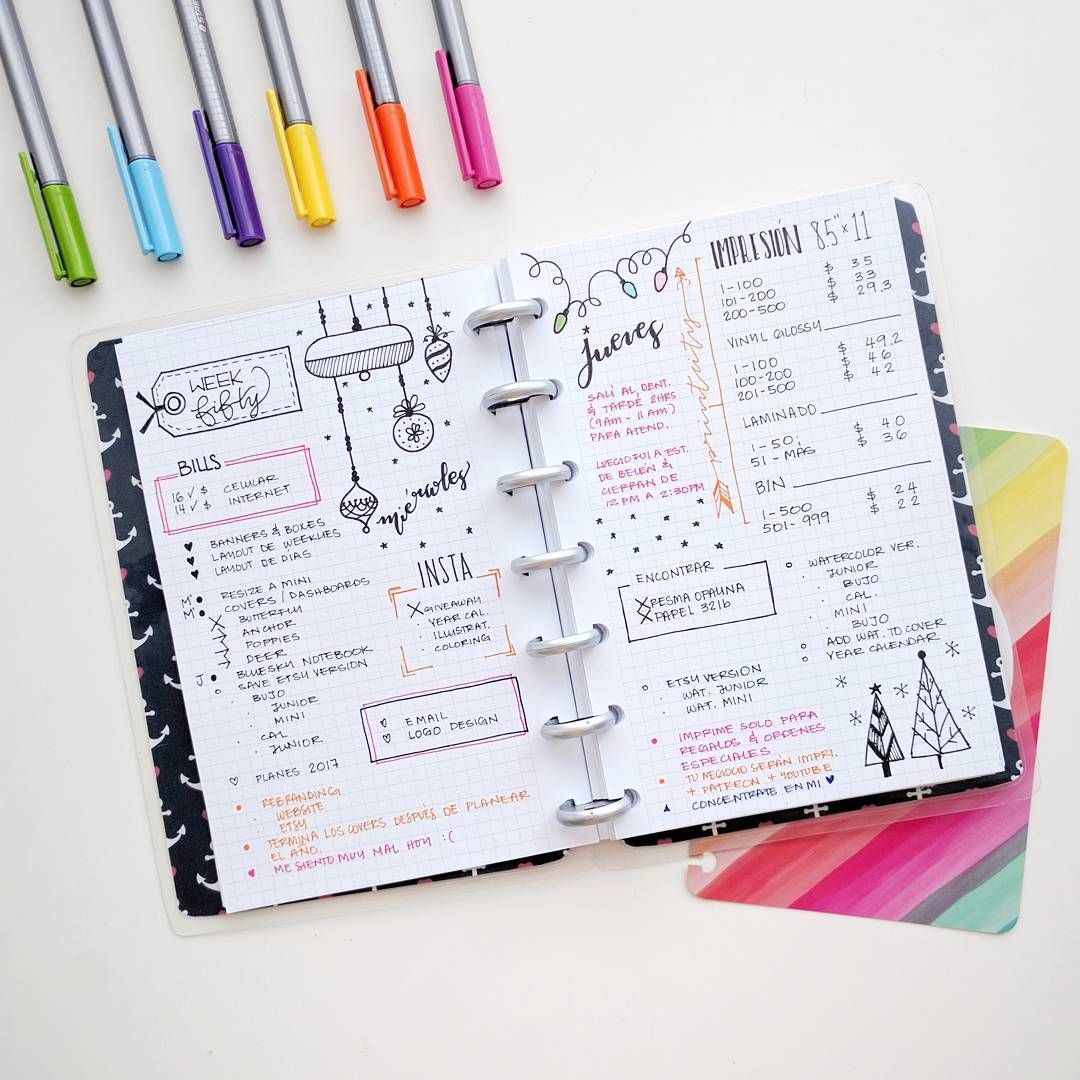 WEEK
fifty
BILLS
16 ✓ $ CELULAR
14 ✓ $ INTERNET
miércoles
♥ BANNERS & BOXES
♥ LAYOUT DE WEEKLIES
♥ LAYOUT DE DIAS
M • RESIZE A MINI
M • COVERS / DASHBOARDS
BUTTERFLY
ANCHOR
POPPIES
DEER
J • BLUESKY NOTEBOOK
SAVE ETSY VERSION
BUJO
JUNIOR
MINI
CAL
JUNIOR
♡ PLANES 2017
• REBRANDING
• WEBSITE
• ETSY
• TERMINA LOS COVERS DESPUÈS DE PLANEAR
EL AÑO.
♥ ME SIENTO MUY MAL HOY :(
INSTA
X GIVEAWAY
· YEAR CAL.
· ILLUSTRAT.
· COLORING
♡ EMAIL
♡ LOGO DESIGN
jueves
SALÍ AL DENT.
& TARDÉ 2HRS
(9AM - 11AM)
PARA ATEND.
LUEGO FUI A EST.
DE BELÉN &
CIERRAN DE
12PM A 2:30PM
IMPRESIÓN 8.5" x 11
1-100 $ 35
101-200 $ 33
200-500 $ 29.3
VINYL GLOSSY
1-100 $ 49.2
100-200 $ 46
201-500 $ 42
LAMINADO
1-50 $ 40
51-MAS $ 36
BIN
1-500 $ 24
501-999 $ 22
ENCONTRAR
X RESMA OPALINA
X PAPEL 32lb
WATERCOLOR VER.
JUNIOR
BUJO
CAL.
MINI
BUJO
ADD WAT. TO COVER
YEAR CALENDAR
ETSY VERSION
WAT. JUNIOR
WAT. MINI
• IMPRIME SOLO PARA
REGALOS & ORDENES
ESPECIALES
• TU NEGOCIO SERÁN IMPRI.
+ PATREON + YOUTUBE
▲ CONCENTRATE EN MI ♥